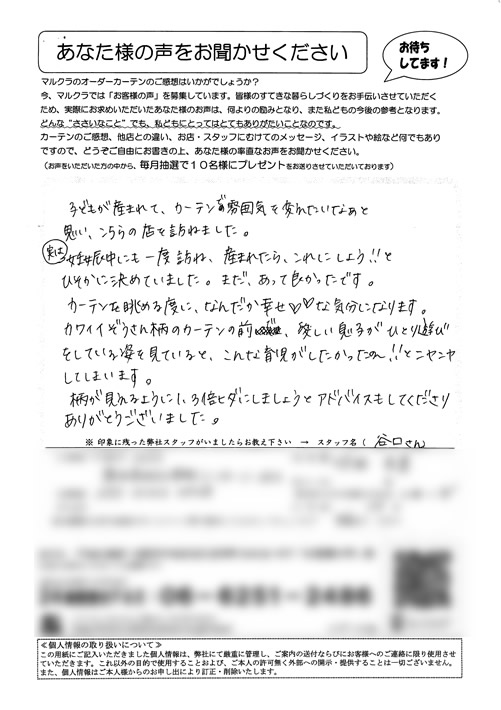 あなた様の声をお聞かせください
お待ち
してます！
マルクラのオーダーカーテンのご感想はいかがでしょうか？
今、マルクラでは「お客様の声」を募集しています。皆様のすてきな暮らしづくりをお手伝いさせていただく
ため、実際にお求めいただいたあなた様のお声は、何よりの励みとなり、また私どもの今後の参考となります。
どんな“ささいなこと”でも、私どもにとってはとてもありがたいことなのです。
カーテンのご感想、他店との違い、お店・スタッフにむけてのメッセージ、イラストや絵など何でもあり
ですので、どうぞご自由にお書きの上、あなた様の率直なお声をお聞かせください。
（お声をいただいた方の中から、毎月抽選で１０名様にプレゼントをお送りさせていただいております）
子どもが産まれて、カーテンの雰囲気を変えたいなあと
思い、こちらの店を訪ねました。
実は 妊娠中にも一度訪ね、産まれたら、これにしよう!!と
ひそかに決めていました。まだ、あって良かったです。
カーテンを眺める度に、なんだか幸せ♡♡な気分になります。
カワイイぞうさん柄のカーテンの前で、愛しい息子がひとり遊び
をしている姿を見ていると、こんな育児がしたかったの〜!!とニヤニヤ
してしまいます。
柄が見えるように1.3倍ヒダにしましょうとアドバイスもしてくださり
ありがとうございました。
※ 印象に残った弊社スタッフがいましたらお教え下さい → スタッフ名（ 谷口さん
≪個人情報の取り扱いについて≫
この用紙にご記入いただきました個人情報は、弊社にて厳重に管理し、ご案内の送付ならびにお客様へのご連絡に限り使用させ
ていただきます。これ以外の目的で使用することおよび、ご本人の許可無く外部への開示・提供することは一切ございません。
また、個人情報はご本人様からのお申し出により訂正・削除いたします。